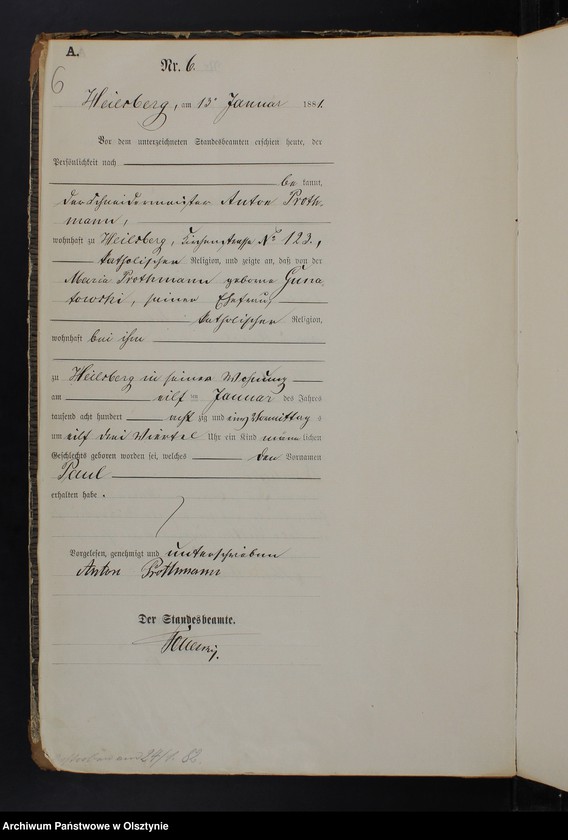 A.
6
Nr. 6.
Heilsberg, am 13. Januar 1881.
Vor dem unterzeichneten Standesbeamten erschien heute, der
Persönlichkeit nach
be kannt,
der Schneidermeister Anton Proth-
mann,
wohnhaft zu Heilsberg, Kirchenstrasse No 123,
katholischer Religion, und zeigte an, daß von der
Maria Prothmann geborne
towski, seiner Ehefrau,
katholischer Religion,
wohnhaft bei ihm
zu Heilsberg in seiner Wohnung
am eilf ten Januar des Jahres
tausend acht hundert acht zig und eins Vormittag s
um eilf drei Viertel Uhr ein Kind männ lichen
Geschlechts geboren worden sei, welches den Vornamen
Paul
erhalten habe.
Vorgelesen, genehmigt und unterschrieben
Anton Prothmann
Der Standesbeamte.
82.
Archiwum Państwowe w Olsztynie